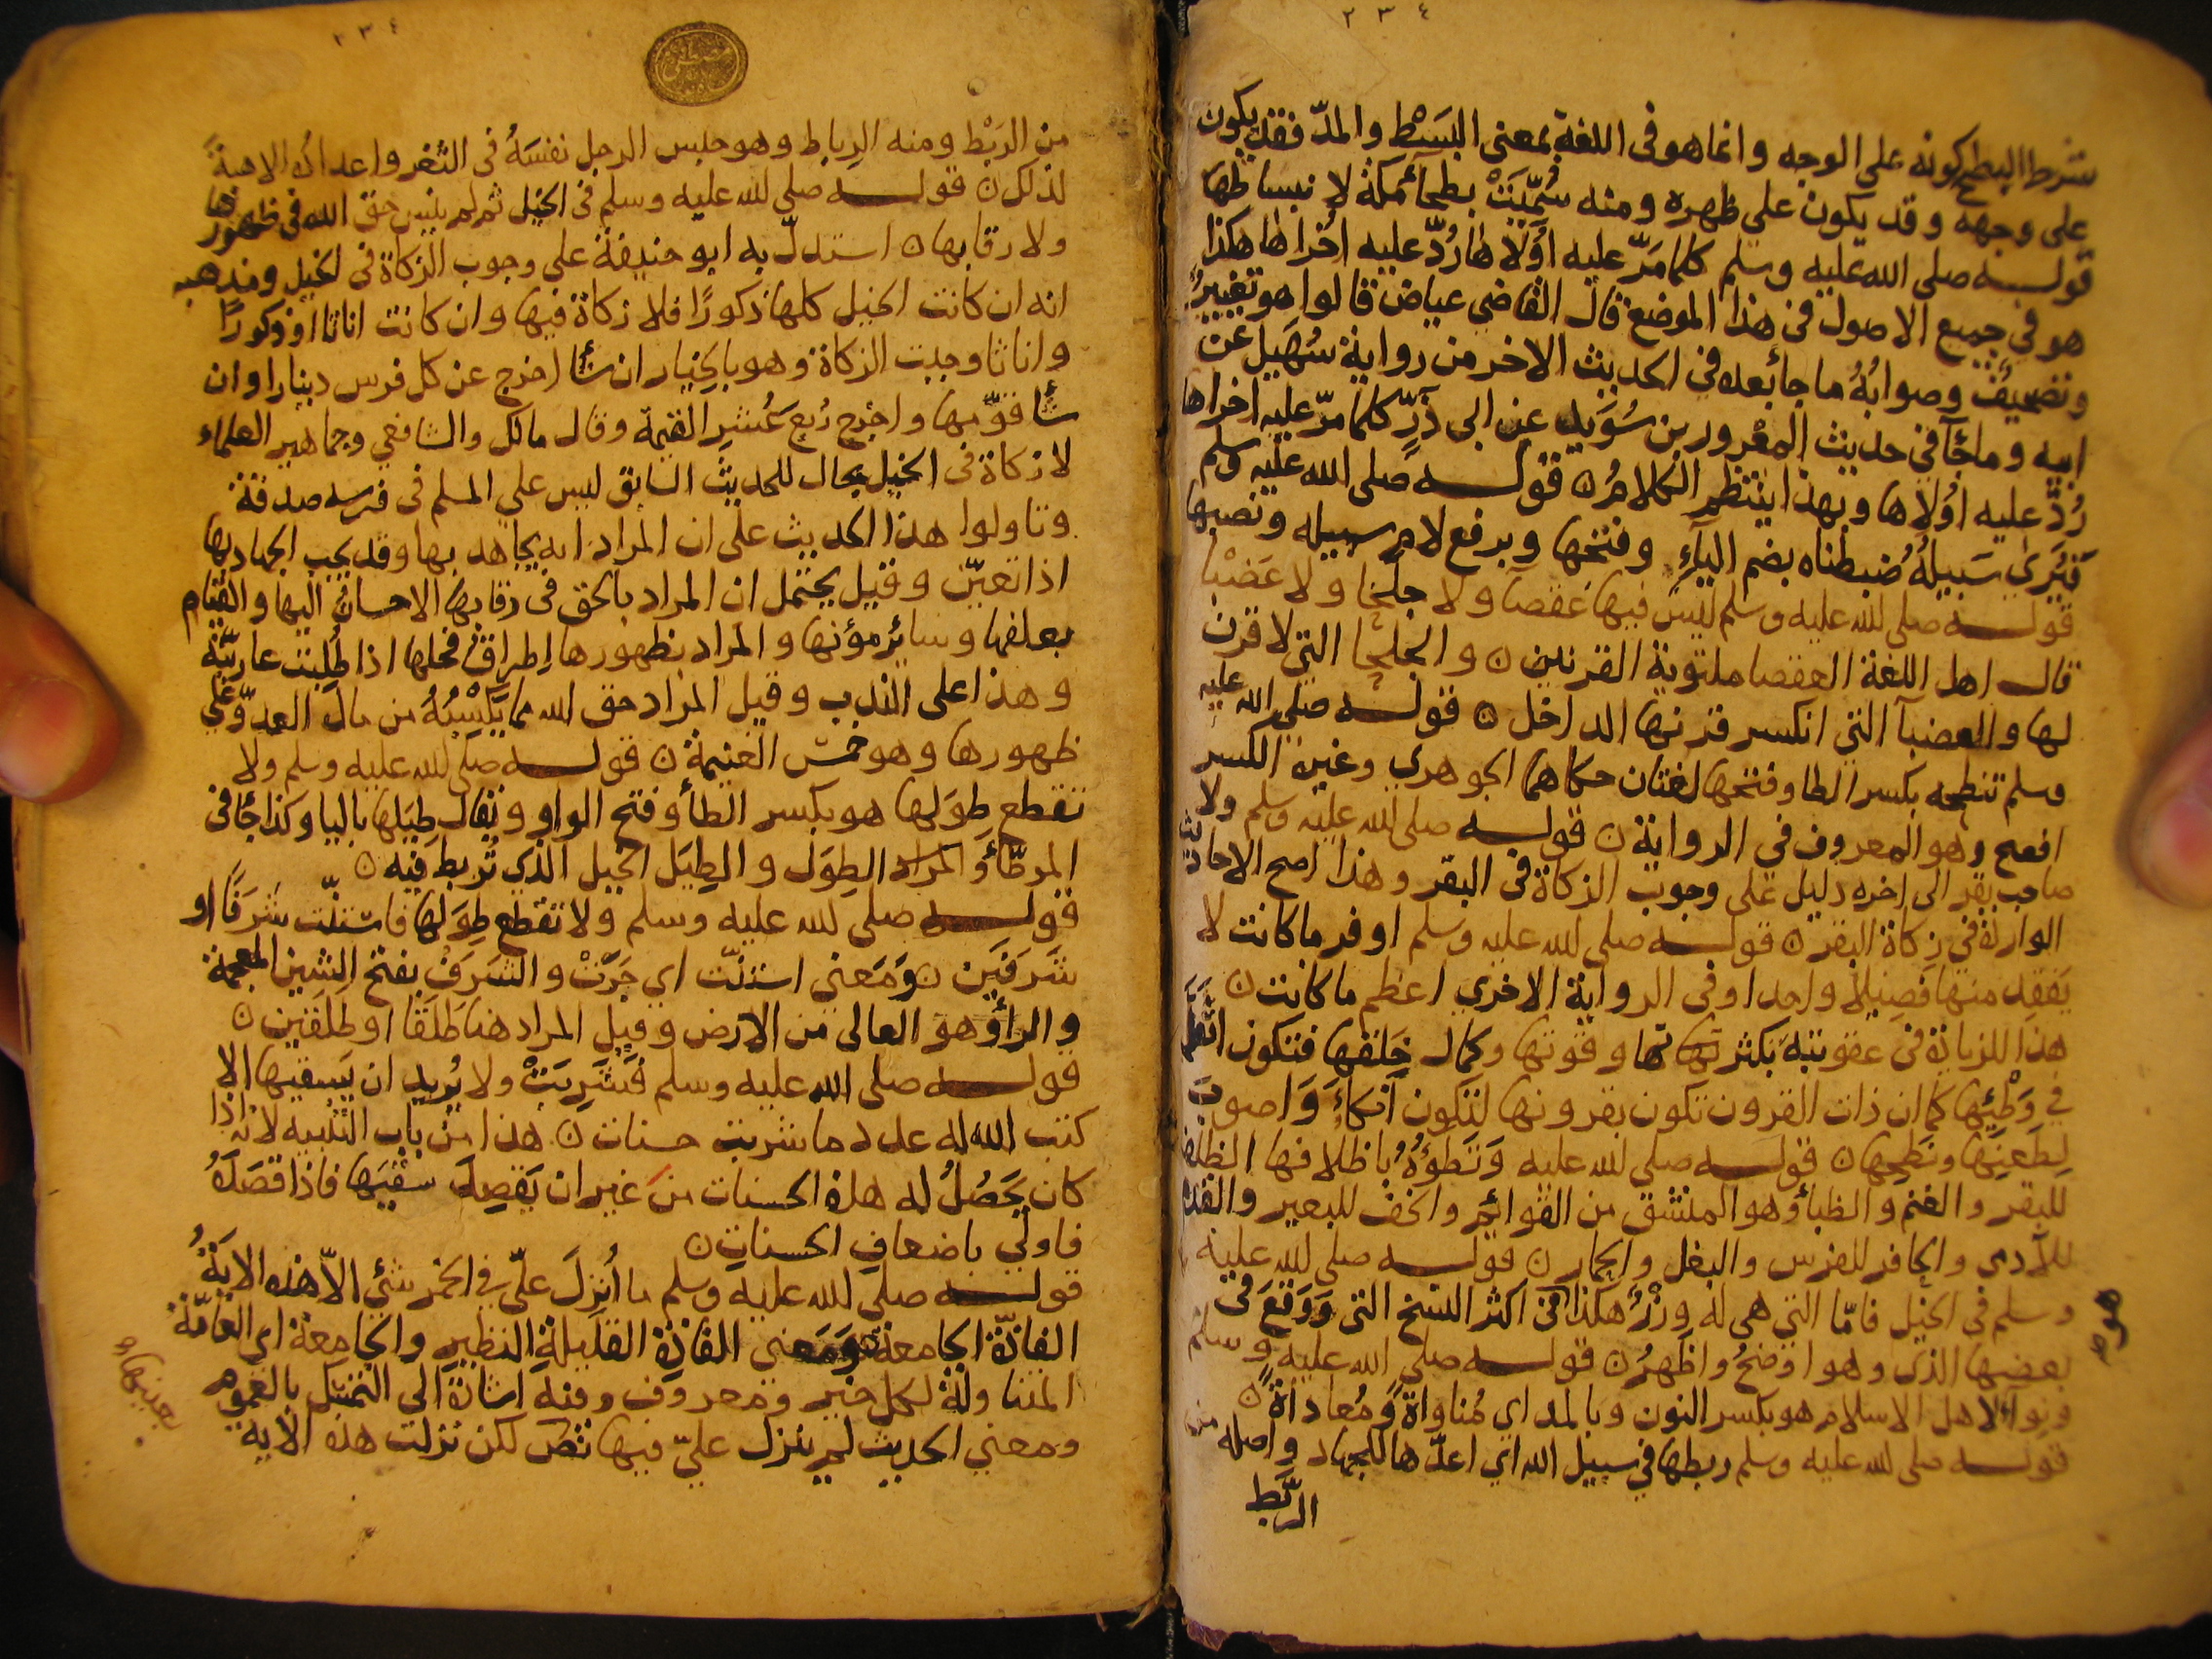 ٢٣٤
شرط البطح كونه على الوجه وانما هو فى اللغة بمعنى البَسْط والمدّ فقد يكون
على وجهه وقد يكون على ظهره ومنه سُمِّيَتْ بطحآء مكة لانبساطها
قولــه صلى الله عليه وسلم كلما مَرّ عليه أُولاها رُدّ عليه اُخراها هكذا
هو فى جميع الاصول فى هذا الموضع قال القاضي عياض قالوا هو تغييرٌ
وتصحيفٌ وصوابُهُ ما جأ بعده فى الحديث الاخر من رواية سُهَيل عن
ابيه وما جآ فى حديث المعْرور بن سُوَيد عن ابى ذَرٍّ كلما مرّ عليه اخراها
رُدَّ عليه أُولاها وبهذا ينتظم الكلامُ ن قولــه صلى الله عليه وسلم
فَيَرى سَبيلَهُ ضبطناه بضم اليآءِ وفتحها وبرفع لام سبيله ونصبها
قولــه صلى لله عليه وسلم ليس فيها عَقصآ ولا جلحا ولا عَضْبا
قال اهل اللغة العقصا ملتوية القرنين ن والجلحا التي لا قرن
لها والعضبآ التي انكسر قرنها الداخل ن قولــه صلى الله عليه
وسلم تنطحه بكسر الطا وفتحها لغتان حكاهما الجوهري وغيره الكسر
افصح وهو المعروف في الرواية ن قولــه صلى لله عليه وسلم ولا
صاحب بقر الى اخره دليل على وجوب الزكاة فى البقر وهذا اصح الاحاديث
الواردة فى زكاة البقر ن قولــه صلى لله عليه وسلم اوفر ما كانت لا
يَفقِد منها فَصِيلا واحدا وفى الرواية الاخرى اعظم ما كانت ن
هذا للزيادة فى عقوبته بكثرتها وقوتها وكمال خَلقها فتكون اثقل
في وَطْئِها كما ان ذات القرون تكون بقرونها لتكون اَنكأَ وَاصوبَ
لِطَعنِها ونَطحِها ن قولــه صلى لله عليه وَتَطؤُهُ باظلافها الظلف
للبقر والغنم والظبأ وهو المنشق من القوائم والخف للبعير والقدم
للآدمي والحافر للفرس والبغل والحمار ن قولــه صلى لله عليه
وسلم فى الخيل فامّا التي هى له وِزْرٌ هكذا فى اكثر النسخ التى وَوَقعَ فى
بعضها الذى وهو اوضحُ واظهرُ ن قولــه صلى الله عليه وسلم
ونِوائلا هل الاسلام هو بكسر النون وبالمد اي مُناواةً وَمُعاداةً ن
قولــه صلى لله عليه وسلم ربطها في سبيل الله اي اعدّها للجهاد واصله من
الرَّبط
٢٣٤
من الرَبْط ومنه الرباط وهو حبس الرجل نفسَهُ فى الثغر واعداده الاهبةَ
لذلك ن قولــه صلى لله عليه وسلم فى الخيل ثم لم ينس حق الله فى ظهورها
ولا رقابها ن استدلّ به ابو حنيفة على وجوب الزكاة فى لخيل ومذهبه
انه ان كانت الخيل كلها ذكورًا فلا زكاة فيها وان كانت اناثا او ذكورًا
واناثا وجبت الزكاة وهو بالخيار ان شأ اخرج عن كل فرس دينارا وان
شأ قوّمها واخرج رُبع عُشرِ القيمة وقال مالك والشافعي وجماهير العلماء
لا زكاة فى الخيل بحال للحديث السابق ليس على المسلم فى فرسه صدقة
وتاولوا هذا الحديث على ان المراد انه يجاهد بها وقد يجب الجهاد بها
اذا تعيّن وقيل يحتمل ان المراد بالحق فى رقابها الاحسان اليها والقيام
بعلفها وسائر مؤنها والمراد بظهورها اِطراقُ فحلها اذا طُلِبت عاريّته
وهذا على الندب وقيل المراد حق الله مما يَكْسِبُهُ من مال العدوّ على
ظهورها وهو خمس الغنيمة ن قولــه صلى لله عليه وسلم ولا
تقطع طِوَلها هو بكسر الطأ وفتح الواو ويقال طِيَلها باليا وكذا جأ فى
الموطّأ والمراد الطِوَل والطِيَل الحبل الذي تُربط فيه ن
قولــه صلى لله عليه وسلم ولا تقطع طِوَلها فاستنّت شرَفًا او
شَرَفَين ن وَمَعنى استنّت اي جَرَتْ والشَرَفُ بفتح الشين المعجمة
والرأ وهو العالى من الارض وقيل المراد هنا طَلَقًا او طَلَقين ن
قولــه صلى الله عليه وسلم فَشَرِبَتْ ولا يُريد ان يَسقيها الا
كتب الله له عدد ما شربت حسنات ن هذا من باب التنبيه لانه اذا
كان يَحصُلُ له هذه الحسنات من غير ان يَقصِدَ سقيَها فاذا قصَدَهُ
فاولى باضعافِ الحسناتِ ن
قولــه صلى لله عليه وسلم ما اُنزِلَ علَيّ فى الحمر شئي الاّ هذه الايَةُ
الفاذّة الجامعة وَمَعنى الفاذة القليلةِ النظير والجامعة اى العامّة
المتناولة لكل خير ومعروف وفيه اشارة الى التمسّك بالعموم
ومعني الحديث لم ينزل علىّ فيها نَصّ لكن نزلت هذه الايه
بعينها